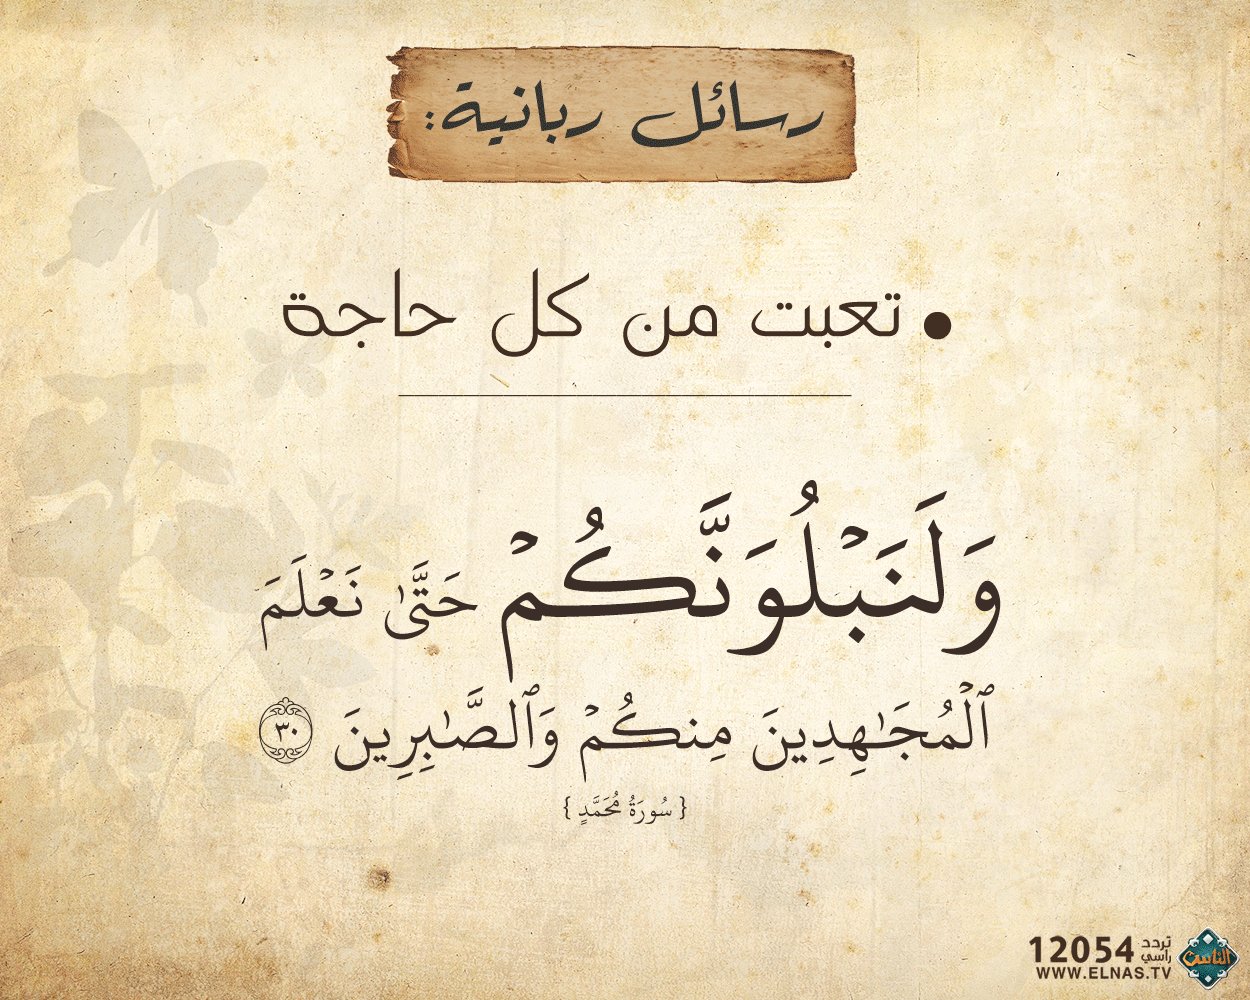 رسائل ربانية:
• تعبت من كل حاجة
وَلَنَبۡلُوَنَّكُمۡ حَتَّىٰ نَعۡلَمَ
ٱلۡمُجَـٰهِدِينَ مِنكُمۡ وَٱلصَّـٰبِرِينَ ٣٠
{ سُورَةُ مُحَمَّدٍ }
تردد راسي 12054
WWW.ELNAS.TV
الناس